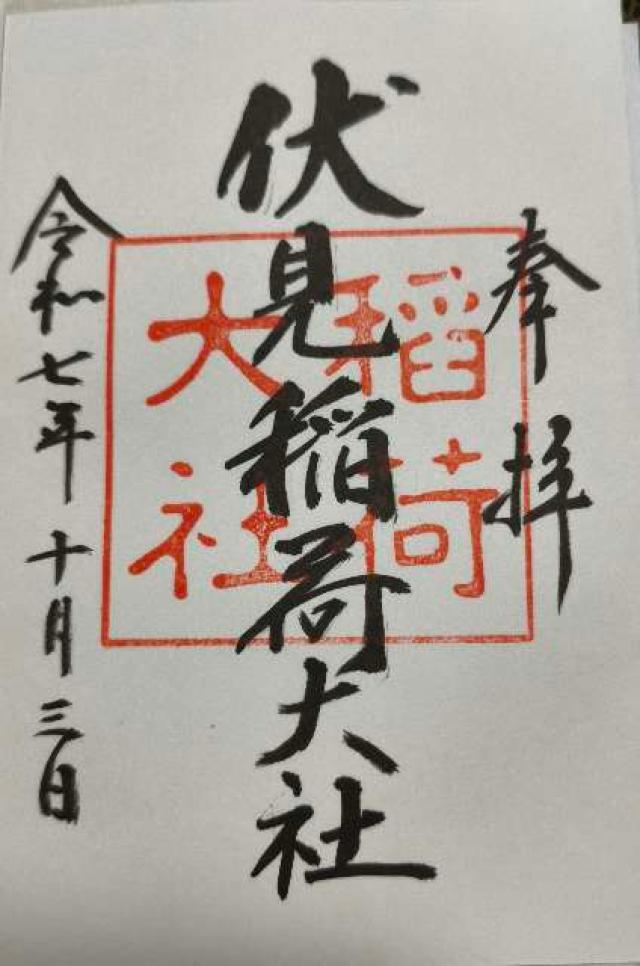 奉拝
伏見稲荷大社
稲荷
大社
令和七年十月三日